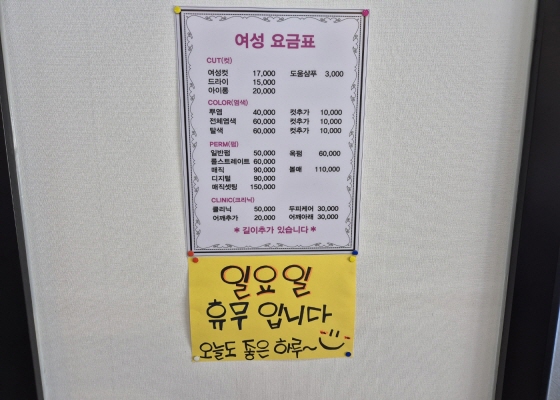 여성 요금표
CUT(컷)
여성컷 17,000 도움샴푸 3,000
드라이 15,000
아이롱 20,000
COLOR(염색)
뿌염 40,000 컷추가 10,000
전체염색 60,000 컷추가 10,000
탈색 60,000 컷추가 10,000
PERM(펌)
일반펌 50,000 옥펌 60,000
폴스트레이트 60,000
매직 90,000 볼매 110,000
디지털 90,000
매직셋팅 150,000
CLINIC(크리닉)
클리닉 50,000 두피케어 30,000
어깨추가 20,000 어깨아래 30,000
* 길이추가 있습니다 *
일요일
휴무 입니다
오늘도 좋은 하루~